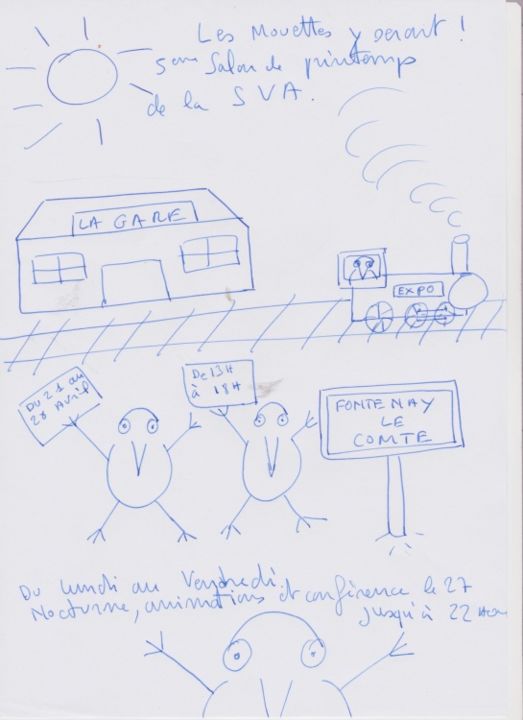 Les Mouettes y seront !
5ème Salon de printemp
de la SVA.
LA GARE
EXPO
Du 21 au
28 Avril
De 13H
à 18H
FONTENAY
LE
COMTE
Du lundi au Vendredi.
Nocturne, animations et conférence le 27
jusqu'à 22